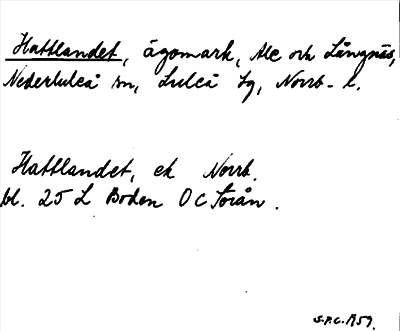 Hattlandet, ägomark, Ale och Långnäs,
Nederluleå sn, Luleå tg, Norrb. l.
Hattlandet, ek Norrb.
bl. 25 L Boden 0 C Torån.
S.P.C. 1959.